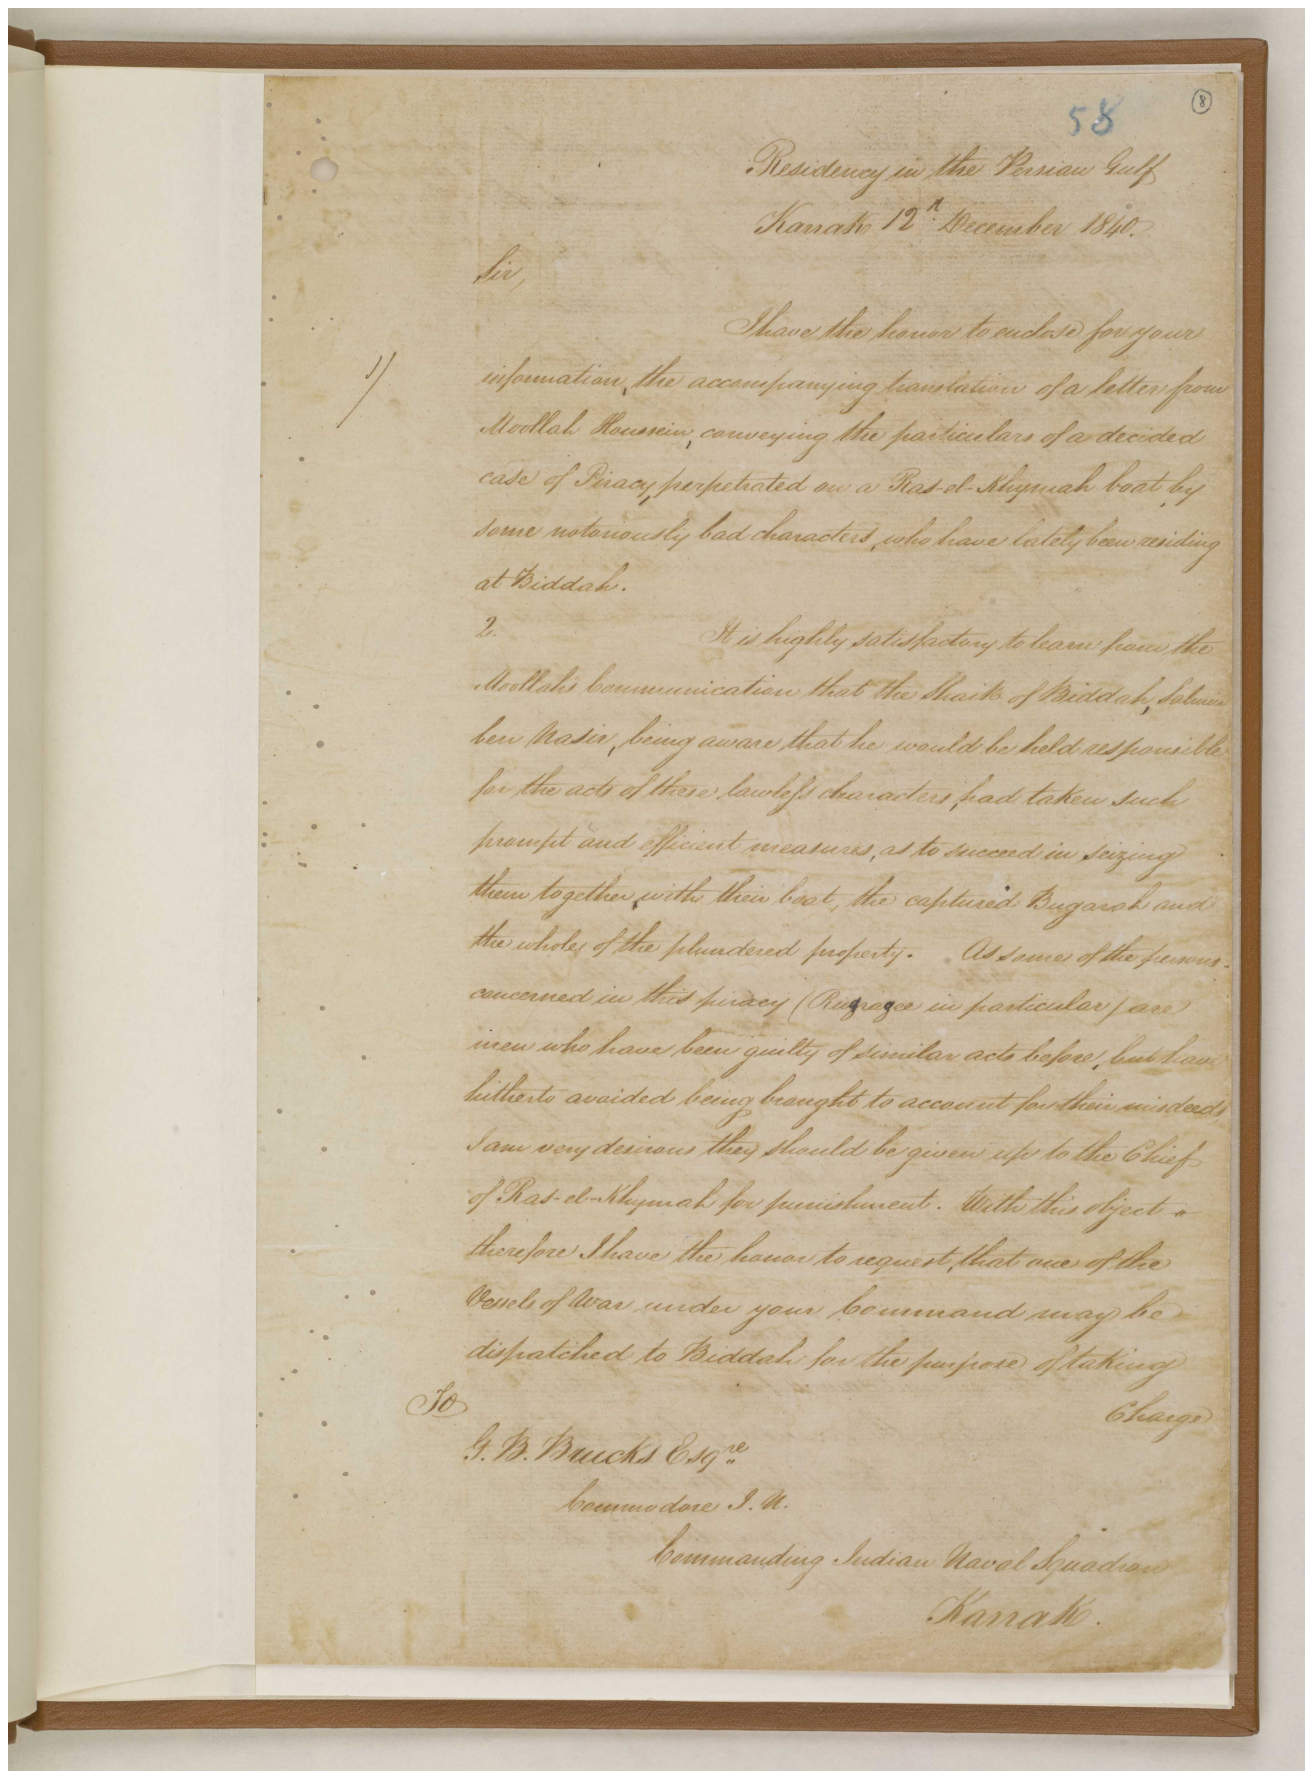 8
58
Residency in the Persian Gulf
Karrak 12th December 1840.
Sir,
I have the honor to enclose for your
1/
information, the accompanying translation of a letter from
Moollah Houssein, conveying the particulars of a decided
case of Piracy, perpetrated on a Ras-el-Khymah boat by
some notoriously bad characters, who have lately been residing
at Biddah.
2. It is highly satisfactory to learn from the
Moollah's Communication that the Shaik of Biddah, Salmin
ben Nasir, being aware that he would be held responsible
for the acts of these lawless characters, had taken such
prompt and efficient measures, as to succeed in seizing
them together, with their boat, the captured Bugarah and
the whole of the plundered property. As some of the persons
concerned in this piracy (Rugragee in particular) are
men who have been guilty of similar acts before, but have
hitherto avoided being brought to account for their misdeeds,
I am very desirous they should be given up to the Chief
of Ras-el-Khymah for punishment. With this object
therefore I have the honor to request, that one of the
Vessels of War under your Command may be
dispatched to Biddah for the purpose of taking
Charge
To
G. B. Brucks Esqre
Commodore I. N.
Commanding Indian Naval Squadron
Karrak.